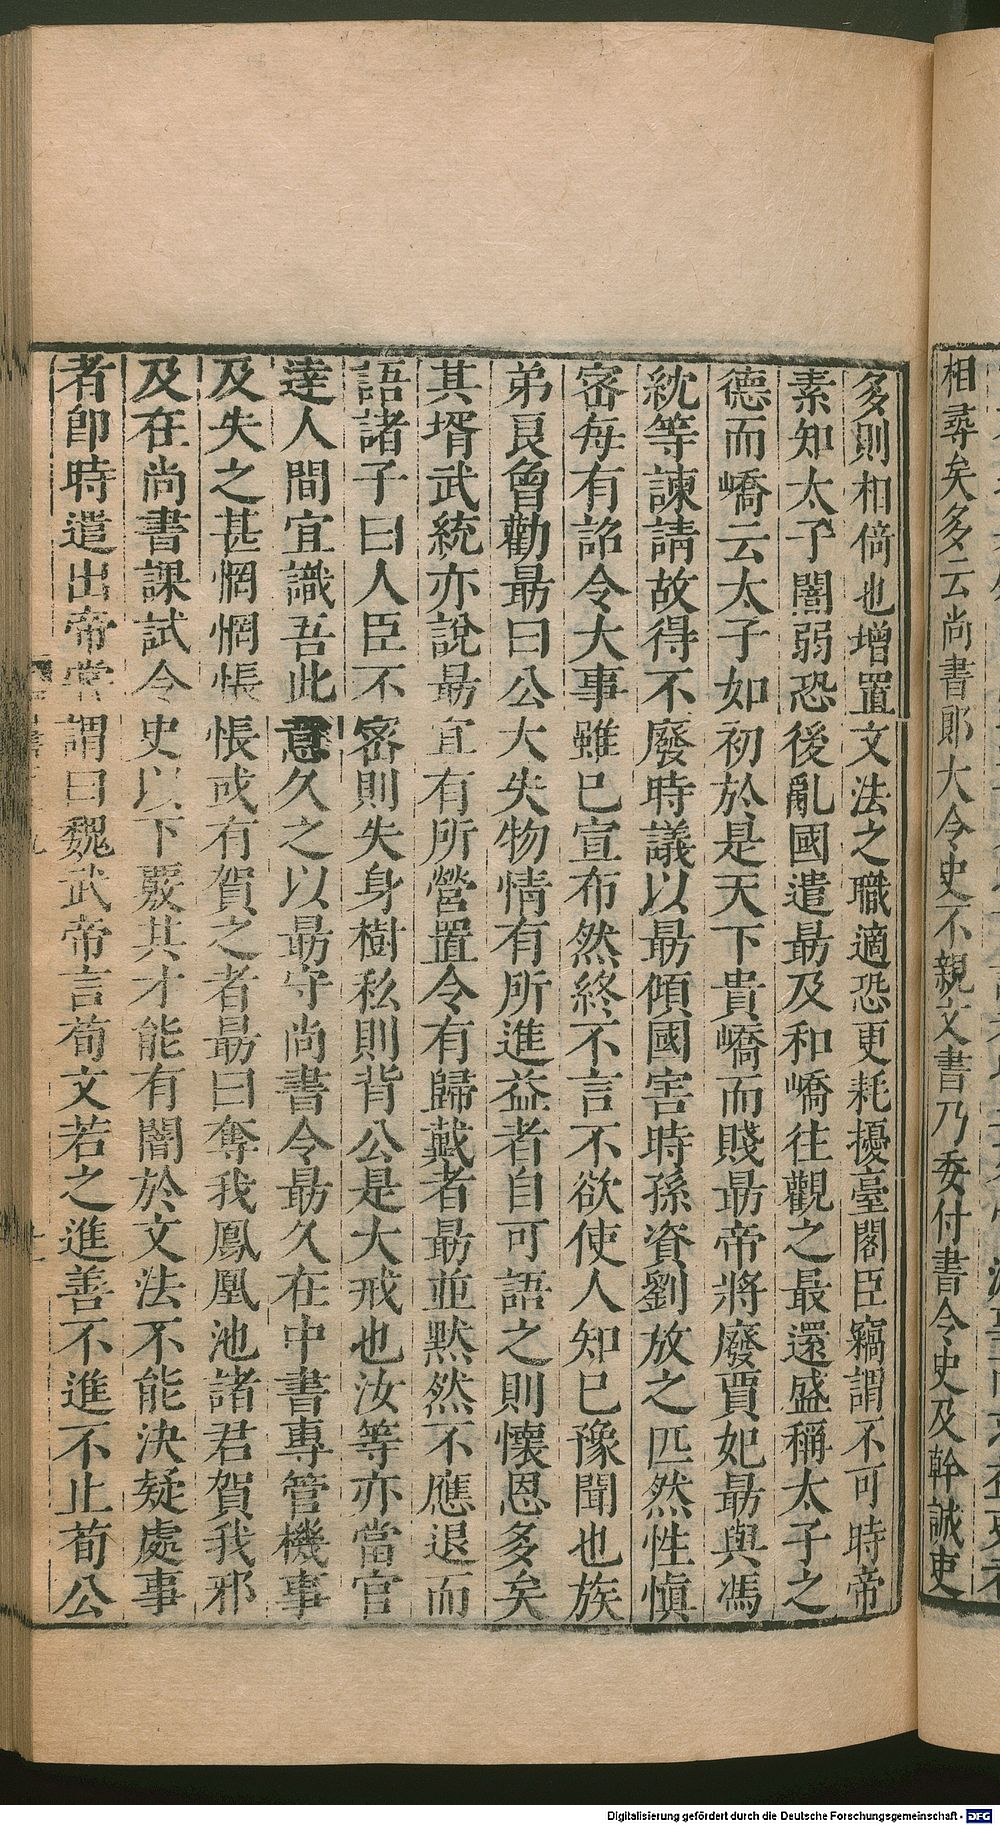 相尋矣多云尚書郎大令史不親文書乃委付書令史及幹誠吏
多則相倚也增置文法之職適恐更耗擾臺閣臣竊謂不可時帝
素知太子闇弱恐後亂國遣勗及和嶠往觀之最還盛稱太子之
德而嶠云太子如初於是天下貴嶠而賤勗帝將廢賈妃勗與馮
紞等諫請故得不廢時議以勗傾國害時孫資劉放之匹然性慎
密每有詔令大事雖已宣布然終不言不欲使人知已豫聞也族
弟良曾勸勗曰公大失物情有所進益者自可語之則懷恩多矣
其壻武統亦說勗宜有所營置令有歸戴者勗並黙然不應退而
語諸子曰人臣不密則失身樹私則背公是大戒也汝等亦當官
達人間宜識吾此意久之以勗守尚書令勗久在中書專管機事
及失之甚惘惘悵悵或有賀之者勗曰奪我鳳凰池諸君賀我邪
及在尚書課試令史以下覈其才能有闇於文法不能決疑處事
者卽時遣出帝甞謂曰魏武帝言荀文若之進善不進不止荀公
Digitalisierung gefördert durch die Deutsche Forschungsgemeinschaft - DFG